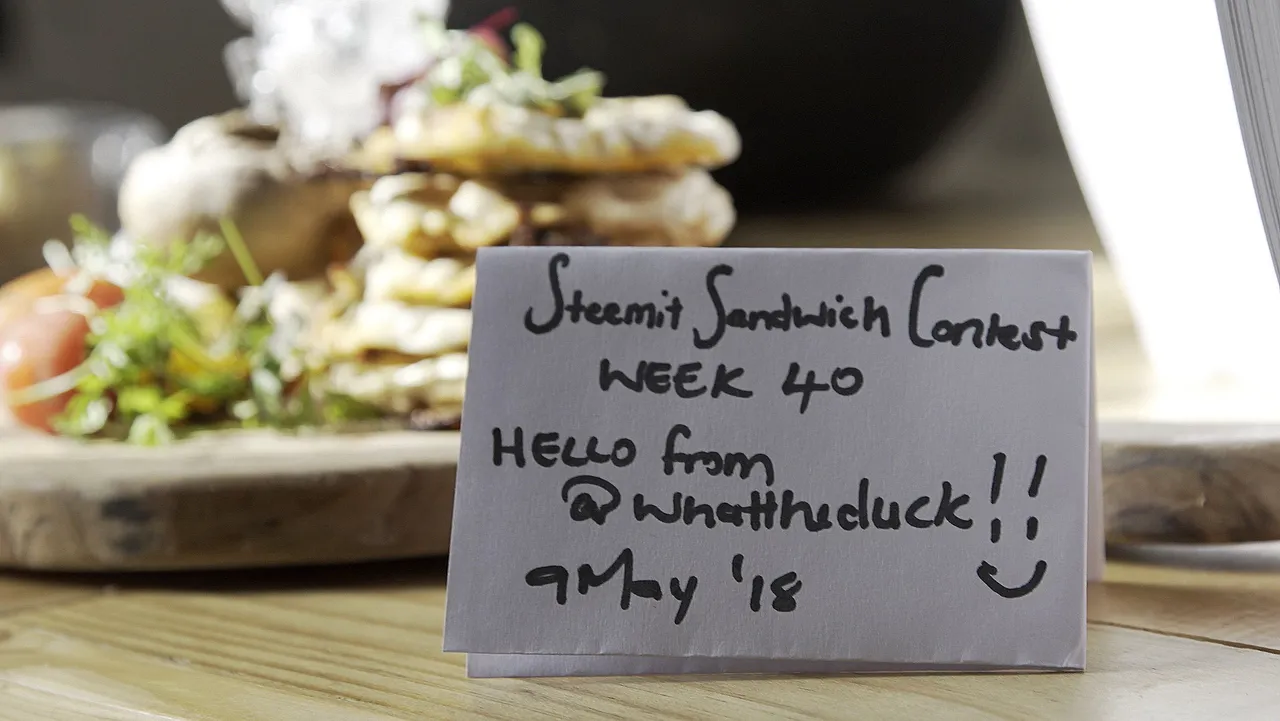 Steemit Sandwich Contest
WEEK 40
HELLO from
@whattheduck!!
9 May '18